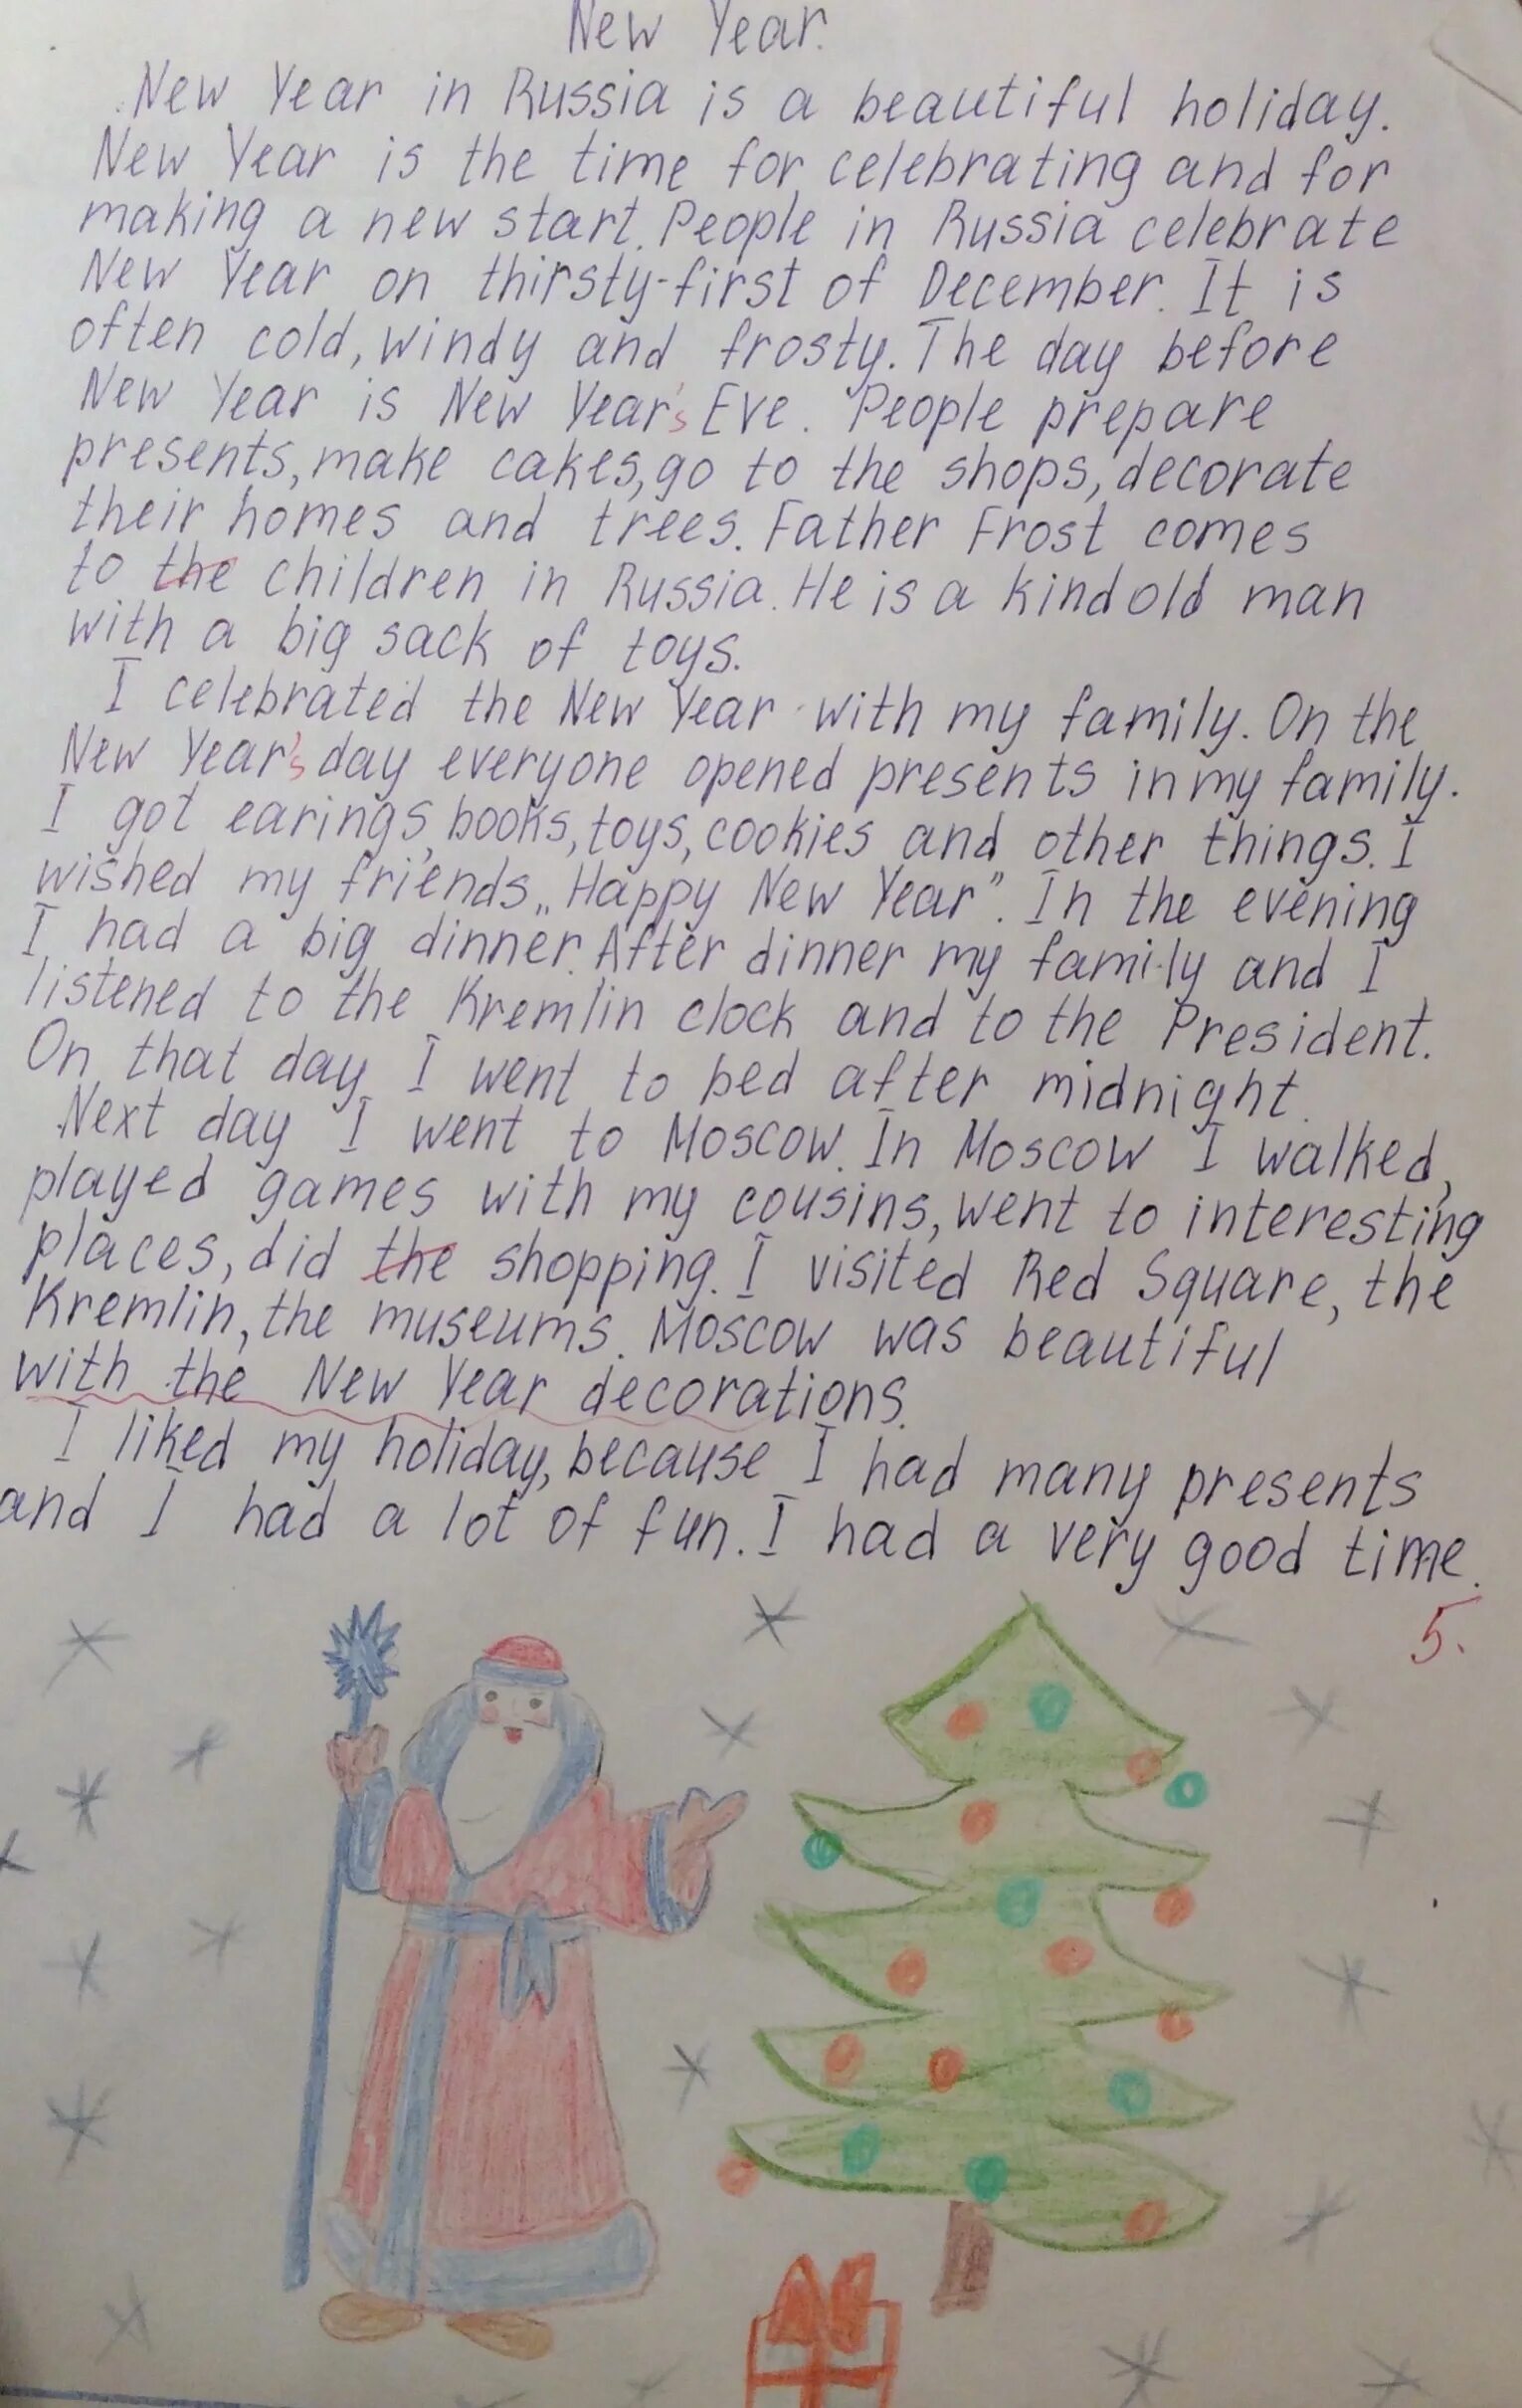 New Year.
New Year in Russia is a beautiful holiday.
New Year is the time for celebrating and for
making a new start. People in Russia celebrate
New Year on thirsty-first of December. It is
often cold, windy and frosty. The day before
New Year is New Year's Eve. People prepare
presents, make cakes, go to the shops, decorate
their homes and trees. Father Frost comes
to the children in Russia. He is a kind old man
with a big sack of toys.
I celebrated the New Year with my family. On the
New Year's day everyone opened presents in my family.
I got earings, books, toys, cookies and other things. I
wished my friends „Happy New Year”. In the evening
I had a big dinner. After dinner my family and I
listened to the Kremlin clock and to the President.
On that day I went to bed after midnight.
Next day I went to Moscow. In Moscow I walked,
played games with my cousins, went to interesting
places, did the shopping. I visited Red Square, the
Kremlin, the museums. Moscow was beautiful
with the New Year decorations.
I liked my holiday, because I had many presents
and I had a lot of fun. I had a very good time.
5.